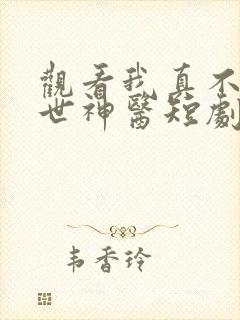 觀看我真不
世神醫短劇
韦香玲